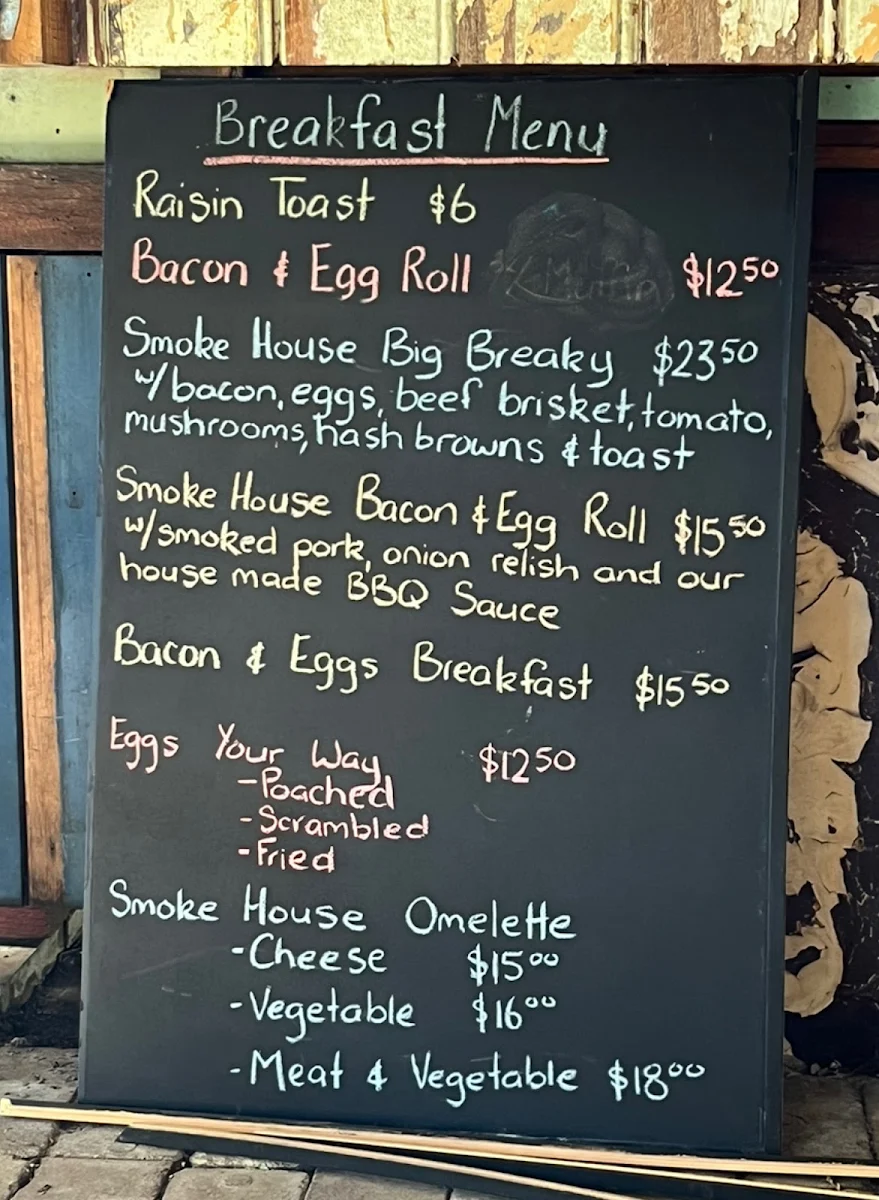 Breakfast Menu
Raisin Toast $6
Bacon & Egg Roll $12⁵⁰
Smoke House Big Breaky $23⁵⁰
w/bacon, eggs, beef brisket, tomato,
mushrooms, hash browns & toast
Smoke House Bacon & Egg Roll $15⁵⁰
w/smoked pork, onion relish and our
house made BBQ Sauce
Bacon & Eggs Breakfast $15⁵⁰
Eggs Your Way $12⁵⁰
-Poached
-Scrambled
-Fried
Smoke House Omelette
-Cheese $15⁰⁰
-Vegetable $16⁰⁰
-Meat & Vegetable $18⁰⁰